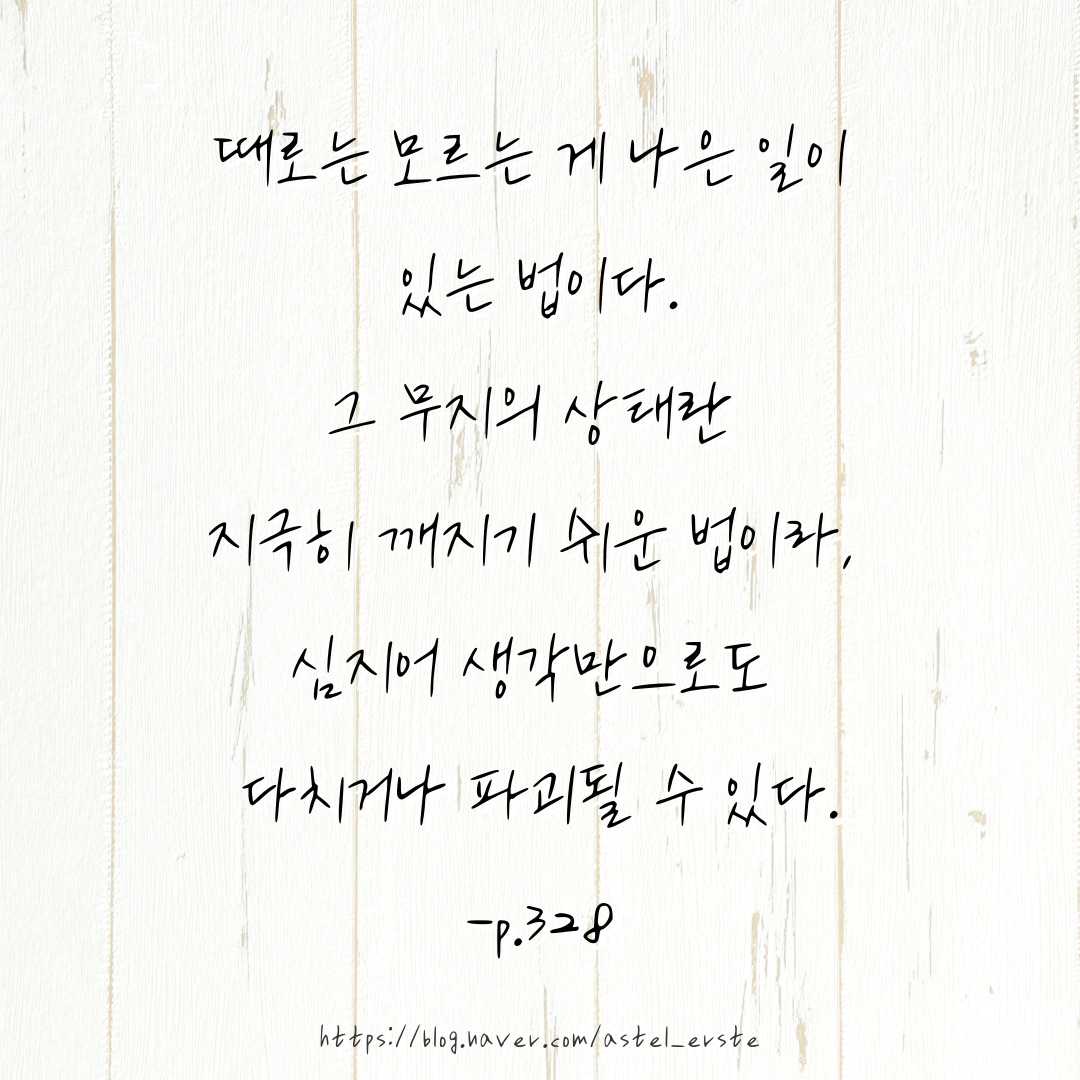 때로는 모르는 게 나은 일이
있는 법이다.
그 무지의 상태란
지극히 깨지기 쉬운 법이라,
심지어 생각만으로도
다치거나 파괴될 수 있다.
-p.328
https://blog.naver.com/astel_erste